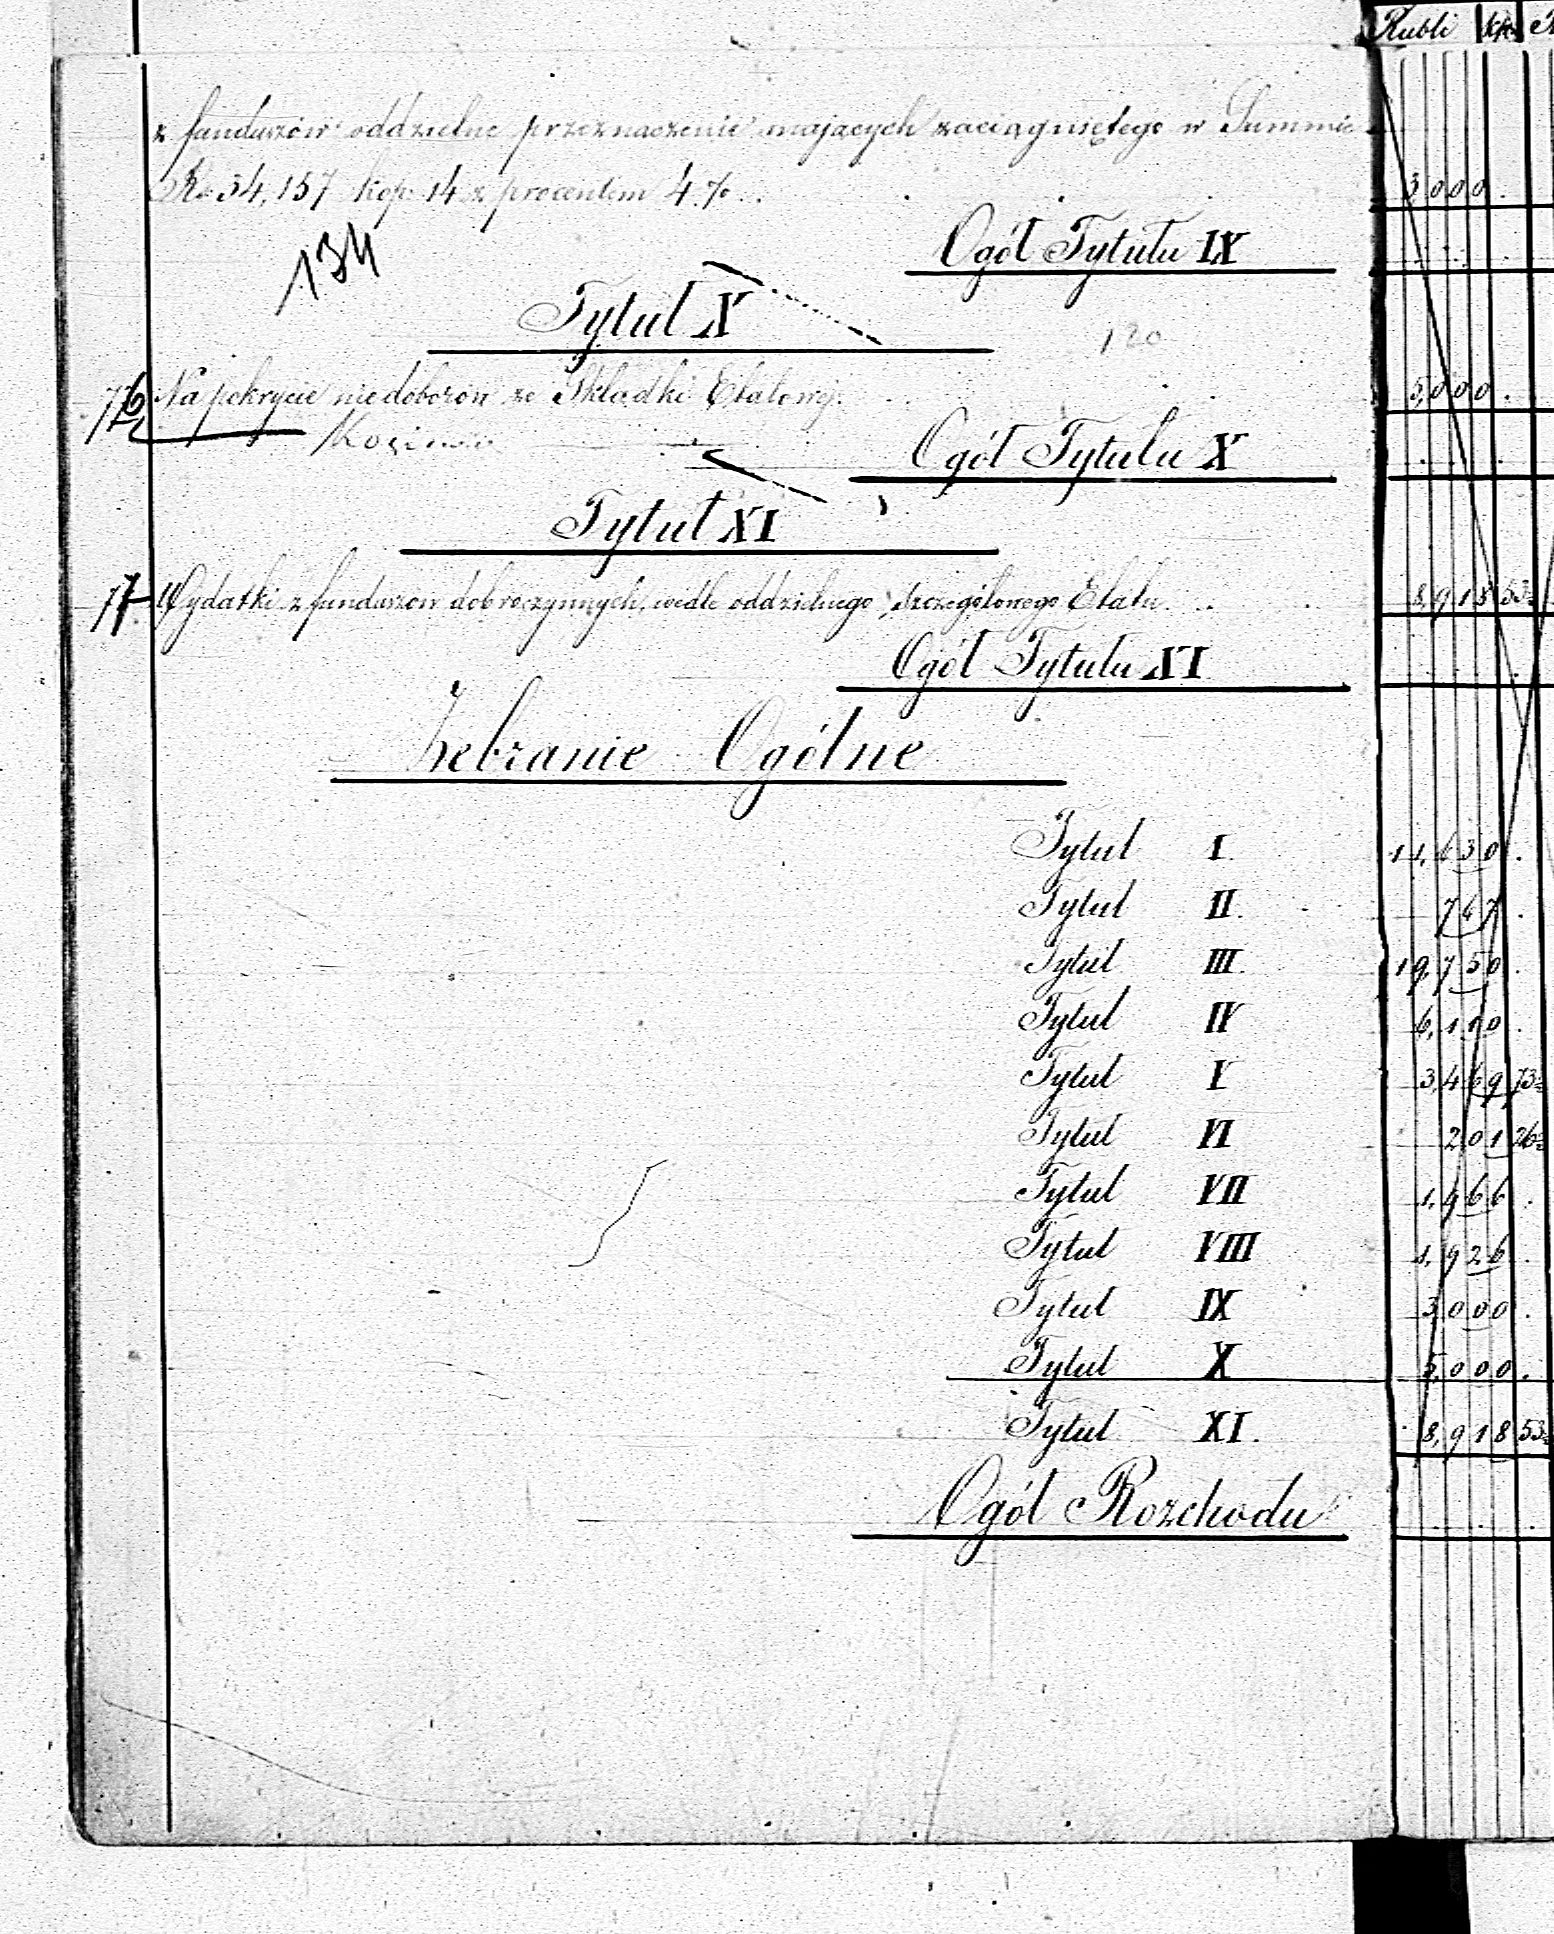 Rubli kop.
z funduszów oddzielne przeznaczenie mających zaciągniętego w Summie
Rs 54,157 kop. 14 z procentem 4 % . . 3,000 .
134
Ogół Tytułu IX
Tytuł X
120
76 Na pokrycie niedoborów ze Składki Etatowej. 5,000 .
Ogół Tytułu X
Tytuł XI
77 Wydatki z funduszów dobroczynnych, wedle oddzielnego szczegółowego Etatu . . 8,918 53
Ogół Tytułu XI
Zebranie Ogólne
Tytuł I. 11,630 .
Tytuł II. 767 .
Tytuł III. 19,750 .
Tytuł IV 6,110 .
Tytuł V 3,469 73
Tytuł VI 201 26
Tytuł VII 1,966 .
Tytuł VIII 1,926 .
Tytuł IX 3,000 .
Tytuł X 5,000 .
Tytuł XI. 8,918 53
Ogół Rozchodu